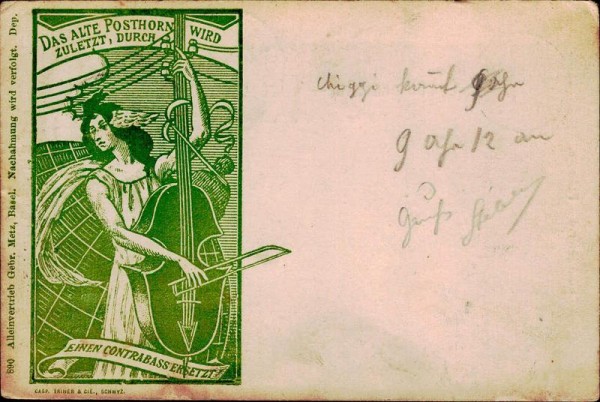 DAS ALTE POSTHORN WIRD
ZULETZT, DURCH
EINEN CONTRABASS ERSETZT!
890 Alleinvertrieb Gebr. Metz, Basel. Nachahmung wird verfolgt. Dep.
CASP. TRINER & CIE., SCHWYZ.
kommt
9 Uhr 12 an
Gruß